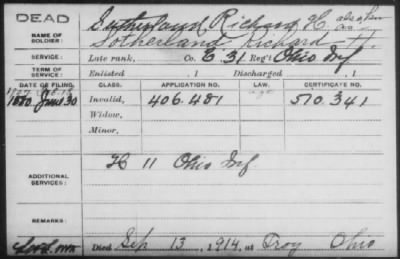 DEAD
NAME OF SOLDIER:
Sutherland Richard H. also known as
Sotherland, Richard H.
SERVICE:
Late rank, Co. E. 31 Reg't Ohio Inf
TERM OF SERVICE:
Enlisted , 1 Discharged , 1
DATE OF FILING. CLASS. APPLICATION NO. LAW. CERTIFICATE NO.
1880 June 30 Invalid, 406.481 510.341
Widow,
Minor,
ADDITIONAL SERVICES:
H 11 Ohio Inf
REMARKS:
Died Sep 13, 1914, at Troy Ohio